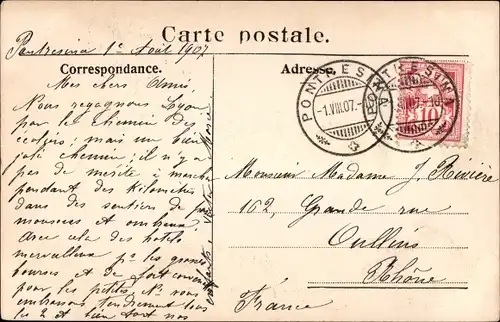 Carte postale.
Pontresina 1er Août 1907
Correspondance.
Adresse.
PONTRESINA
-1.VIII.07.-
PONTRESINA
10
Mes chers Amis
Nous regagnons Lyon
par le chemin des
écoliers, mais un bien
joli chemin; il n'y a
pas de mérite à marcher
pendant des kilomètres
dans des sentiers de
mousseux et ombreux
Avec cela des hotels
merveilleux pr les grosses
bourses et de fort
pour les petites. Ns vous
embrassons tendrement tous
les 2 et bien fort
Monsieur Madame J. Rivière
162, Grande rue
Oullins
Rhône
France